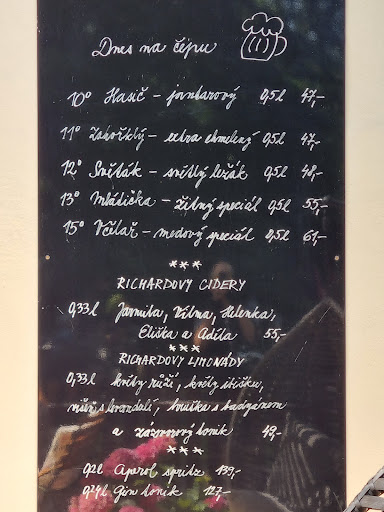 Dnes na čepu
10° Hasič – jantarový 0,5l 47,-
11° Zábořklý – extra chmelený 0,5l 47,-
12° Sviťák – světlý ležák 0,5l 48,-
13° Mlátička – žitný speciál 0,5l 55,-
15° Včelař – medový speciál 0,5l 61,-
***
RICHARDOVY CIDERY
0,33l Jarmila, Vilma, Helenka,
Eliška a Adéla 55,-
***
RICHARDOVY LIMONÁDY
0,33l květy růží, květy ibišku,
s levandulí, hruška s kardamonem
a zázvorový tonik 49,-
***
0,2l Aperol spritz 139,-
0,24l Gin tonik 127,-